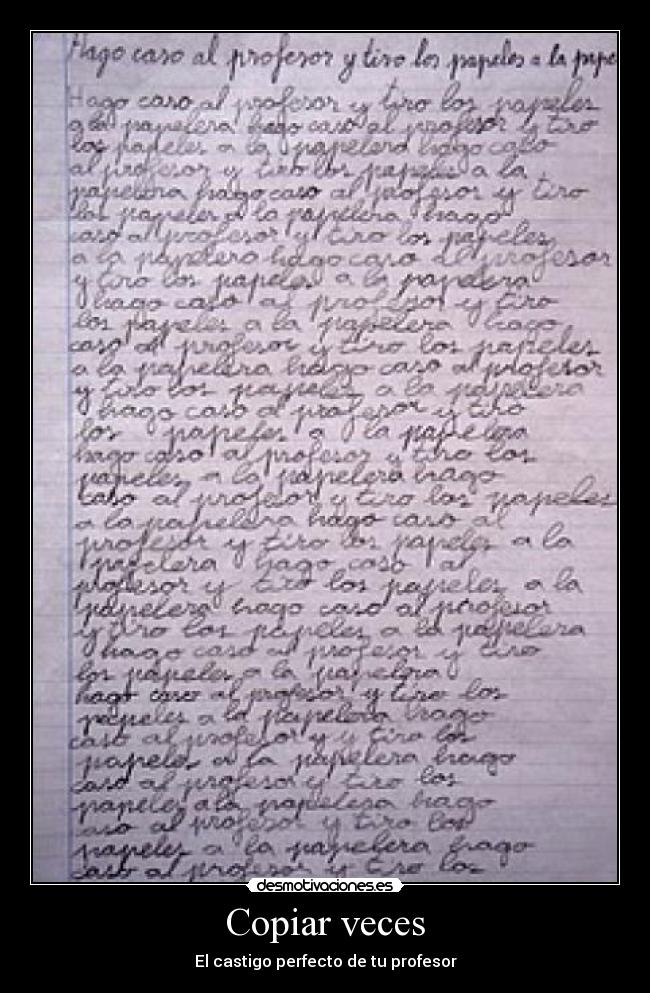 Hago caso al profesor y tiro los papeles a la pape
Hago caso al profesor y tiro los papeles
a la papelera hago caso al profesor y tiro
los papeles a la papelera hago caso
al profesor y tiro los papeles a la
papelera hago caso al profesor y tiro
los papeles a la papelera hago
caso al profesor y tiro los papeles
a la papelera hago caso al profesor
y tiro los papeles a la papelera
hago caso al profesor y tiro
los papeles a la papelera hago
caso al profesor y tiro los papeles
a la papelera hago caso al profesor
y tiro los papeles a la papelera
hago caso al profesor y tiro
los papeles a la papelera
hago caso al profesor y tiro los
papeles a la papelera hago
caso al profesor y tiro los papeles
a la papelera hago caso al
profesor y tiro los papeles a la
papelera hago caso al
profesor y tiro los papeles a la
papelera hago caso al profesor
y tiro los papeles a la papelera
hago caso al profesor y tiro
los papeles a la papelera
hago caso al profesor y tiro los
papeles a la papelera hago
caso al profesor y y tiro los
papeles a la papelera hago
caso al profesor y tiro los
papeles a la papelera hago
caso al profesor y tiro los
papeles a la papelera hago
caso al profesor y tiro los
desmotivaciones.es
Copiar veces
El castigo perfecto de tu profesor